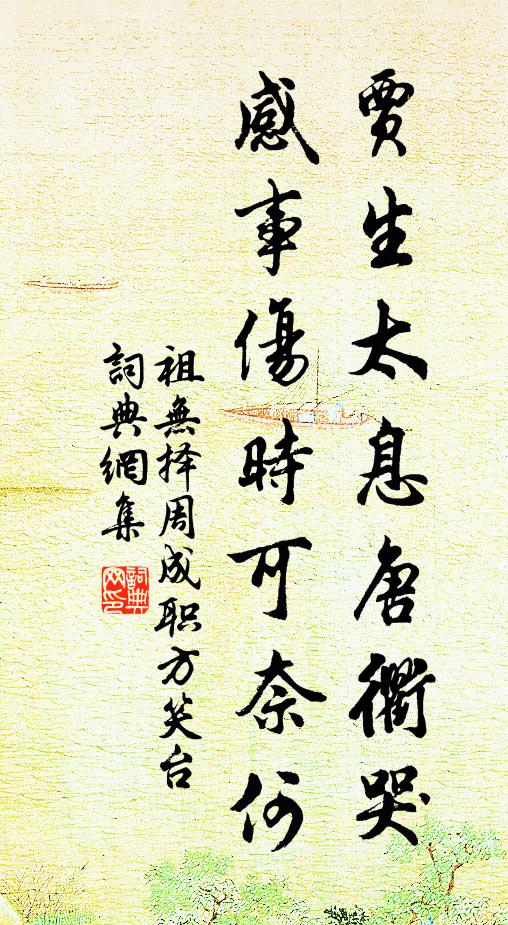 賈生太息唐衢哭
感事傷時可奈何
祖無择周成职方笑台
詞典網集
詞典
网印